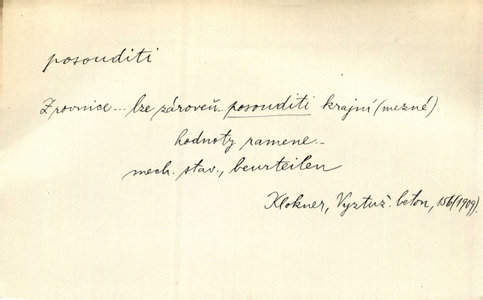 posouditi
Z rovnice... lze zároveň posouditi krajní (mezné)
hodnoty ramene..
mech. stav., beurteilen
Klokner, Vyztuž. beton, 156 (1909).